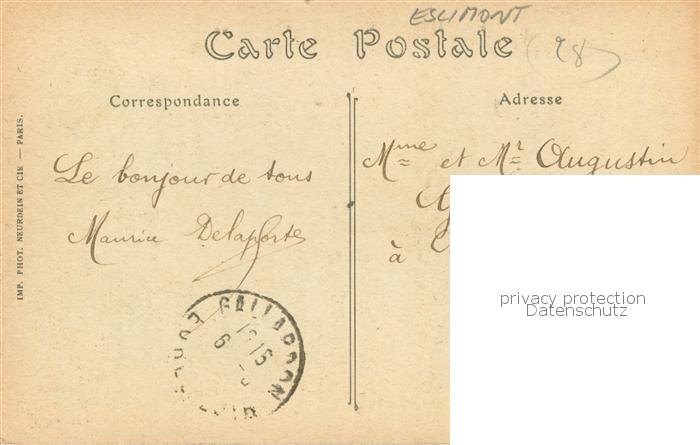 ESLIMONT
Carte Postale
28
Correspondance
Adresse
Le bonjour de tous
Maurice Delaporte
Mme et Mr Augustin
à
IMP. PHOT. NEURDEIN ET CIE — PARIS.
GALLARDON
15
6
privacy protection
Datenschutz